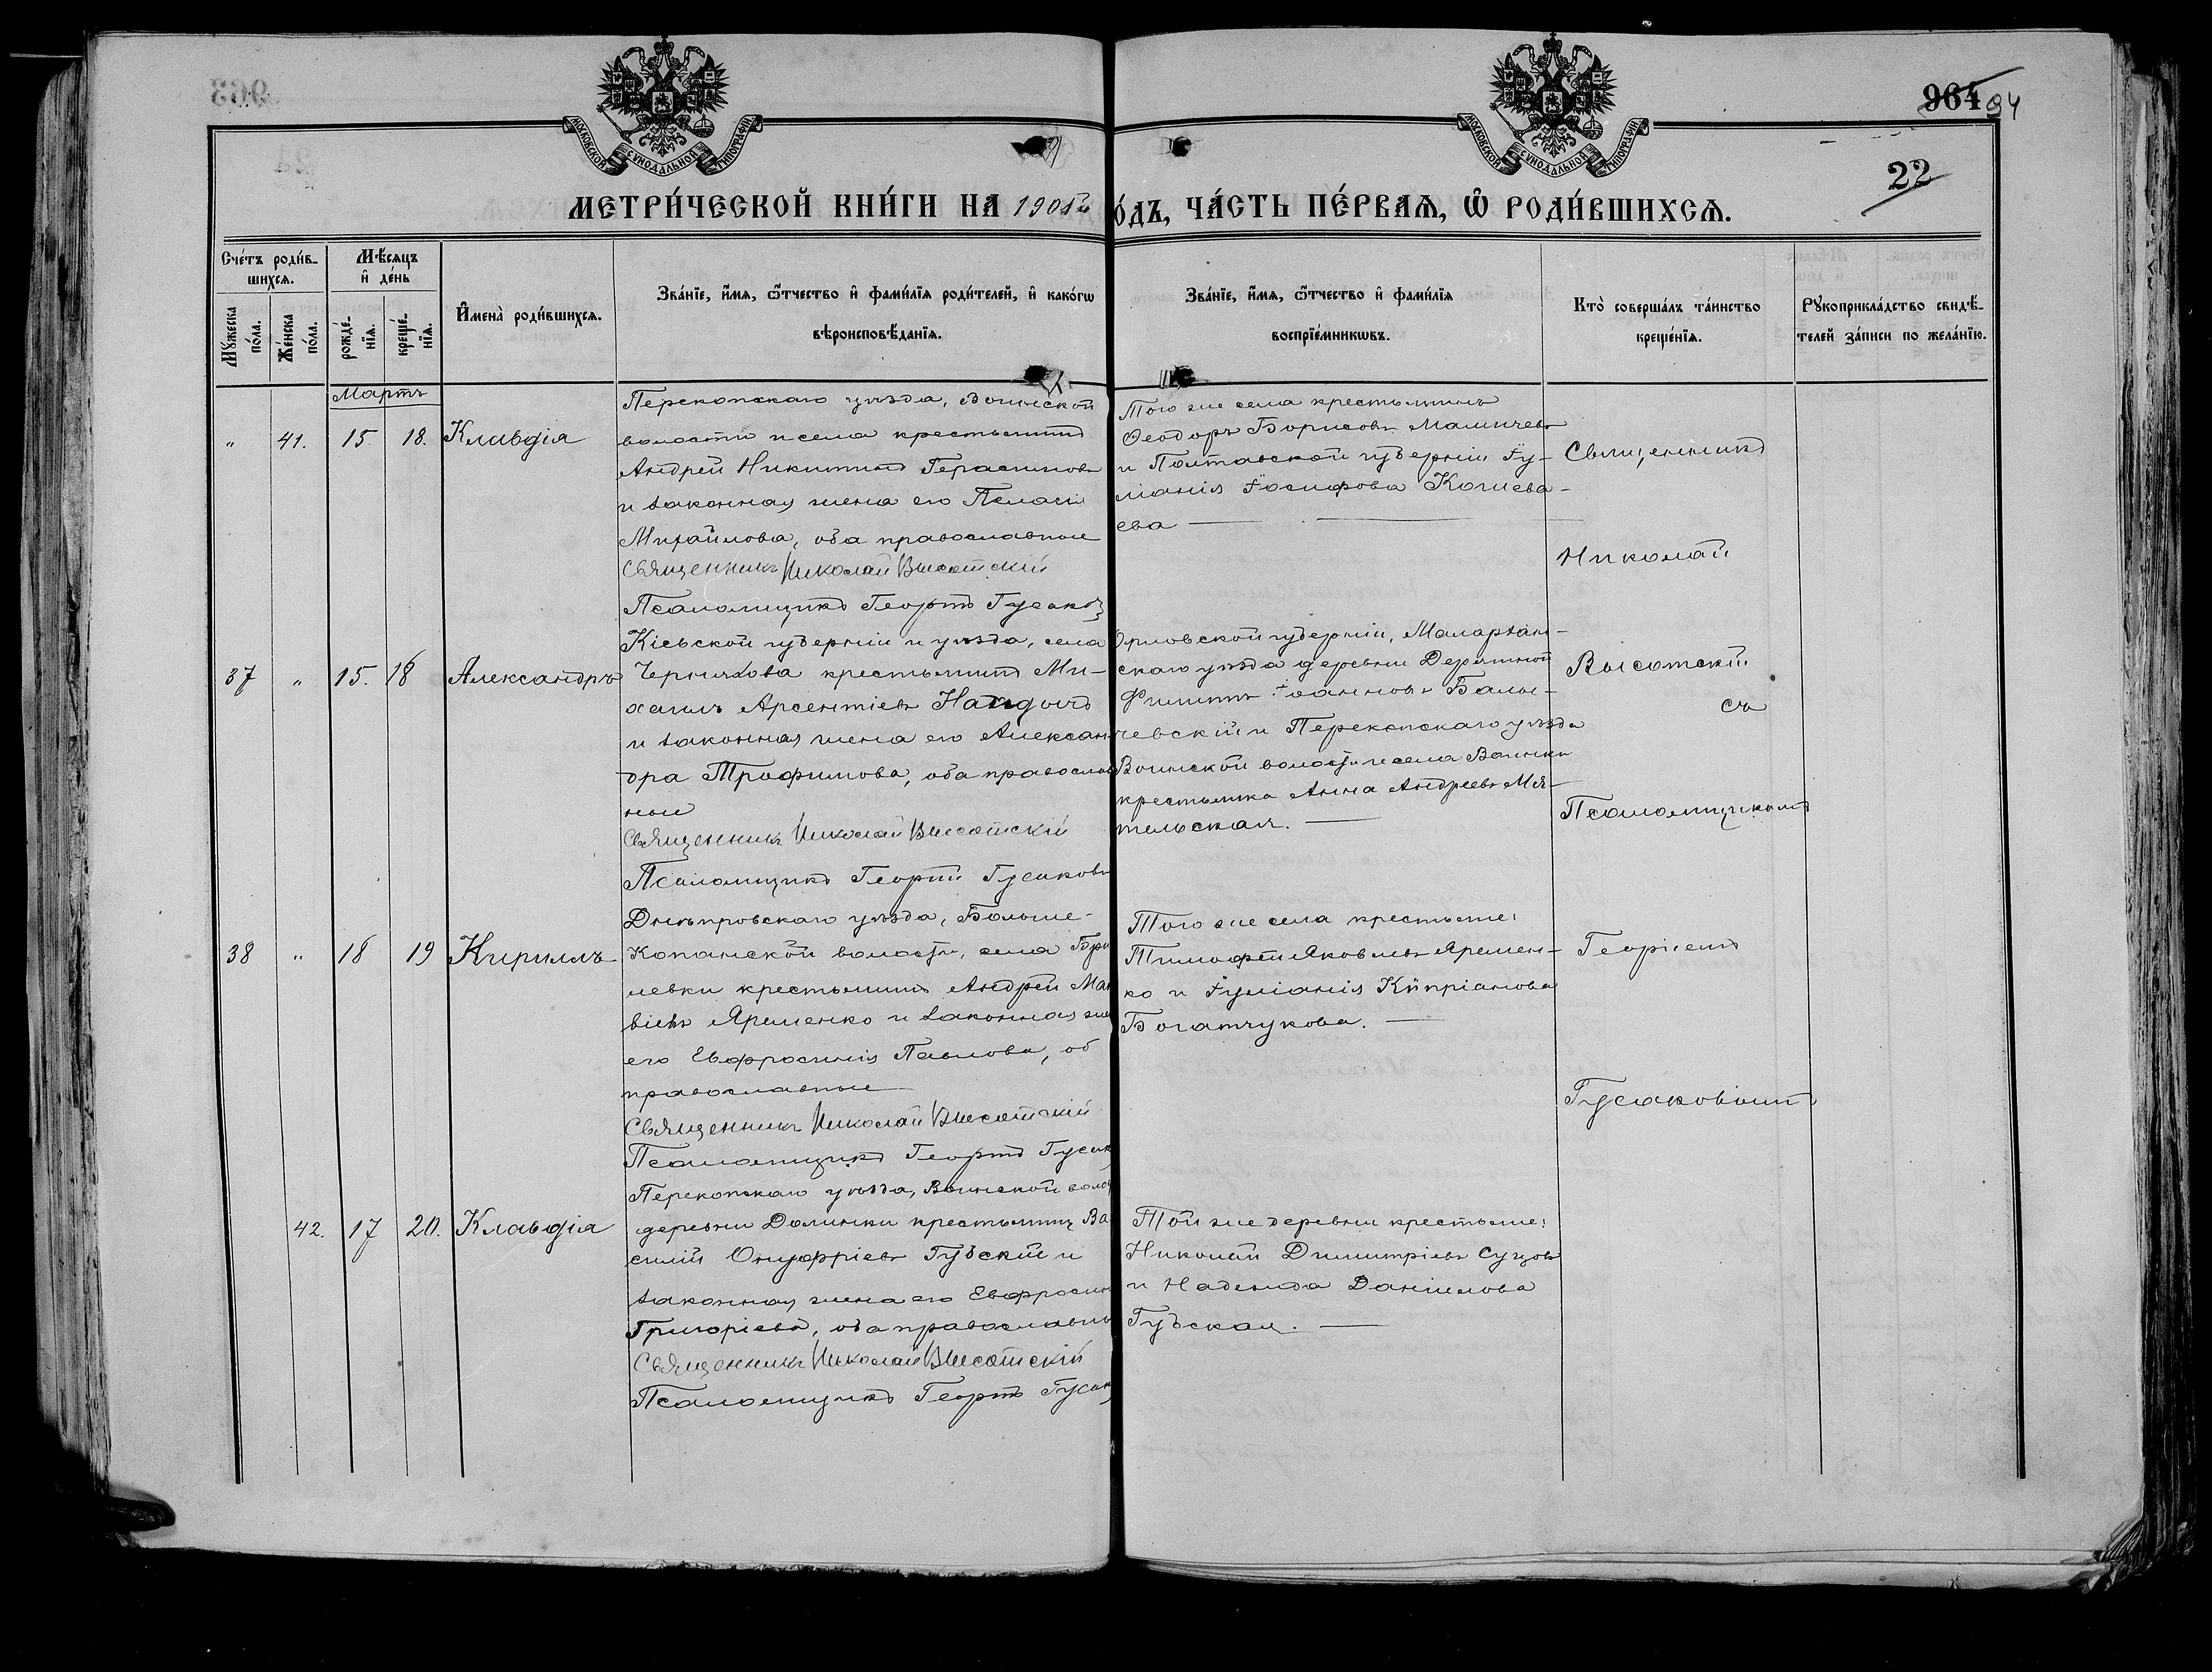 964 94
22
МОСКОВСКОЙ СѴНОДАЛЬНОЙ ТИПОГРАФІИ
МОСКОВСКОЙ СѴНОДАЛЬНОЙ ТИПОГРАФІИ
МЕТРИ́ЧЕСКОЙ КНИ́ГИ НА 1901 О́ДЪ, ЧА́СТЬ ПЕ́РВАѦ, Ѽ РОДИ́ВШИХСѦ.
Сче́тъ роди́в-
шихсѧ.
Мꙋ́жеска по́ла.
Же́нска по́ла.
Мѣ́сяцъ
и҆ де́нь
рожде́-нїѧ.
креще́-нїѧ.
И҆мена̀ роди́вшихсѧ.
Зва́нїе, и҆́мѧ, ѻ҆́тчество и҆ фами́лїѧ роди́телей, и҆ како́гѡ
вѣроисповѣ́данїѧ.
Зва́нїе, и҆́мѧ, ѻ҆́тчество и҆ фами́лїѧ
воспрїе́мникѡвъ.
Кто̀ соверша́лъ та́инство
креще́нїѧ.
Рꙋкоприкла́дство свидѣ́-
телей за́писи по жела́нїю.
Мартъ
" 41. 15. 18. Клавдія
Перекопскаго уѣзда, Воинской
волости и села крестьянинъ
Андрей Никитинъ Герасимовъ
и законная жена его Пелагія
Михайлова, оба православные
Священникъ Николай Высотскій
Псаломщикъ Георгій
Того же села крестьянинъ
Ѳеодоръ Борисовъ
и Полтавской губерніи Іу-
ліанія Іосифова
ева
Священникъ
Николай
37 " 15. 18 Александръ
Кіевской губерніи и уѣзда, села
крестьянинъ Ми-
хаилъ Арсентіевъ
и законная жена его Алексан-
дра Трофимова, оба православ
ные
Священникъ Николай Высотскій
Псаломщикъ Георгій Гусаковъ
Орловской губерніи, Малархан-
скаго уѣзда деревни
Филиппъ Іоанновъ Балы-
чевскій и Перекопскаго уѣзда
Воинской волости и села Воинки
крестьянка Анна Андреева Мя-
тельская.
Высотскій
съ
Псаломщикомъ
38 " 18 19 Кириллъ
Днѣпровскаго уѣзда, Больше-
Копанской волости, села Бри
левки крестьянинъ Андрей Мат
віевъ Яременко и законная же
его Евфросинія Павлова, об
православные
Священникъ Николай Высотскій
Псаломщикъ Георгій Гусак
Того же села крестьяне:
Тимофей Яковлевъ Яремен-
ко и Іуліанія Кипріанова
Богатчукова.
Георгіемъ
Гусаковымъ
42. 17 20. Клавдія
Перекопскаго уѣзда, Воинской воло
деревни Долинки крестьянинъ Ва
силій Онуфріевъ Губскій и
законная жена его Евфросин
Григоріева, оба православны
Священникъ Николай Высотскій
Псаломщикъ Георгій Гусак
Той же деревни крестьяне:
Николай Димитріевъ
и Надежда Даніилова
Губская.